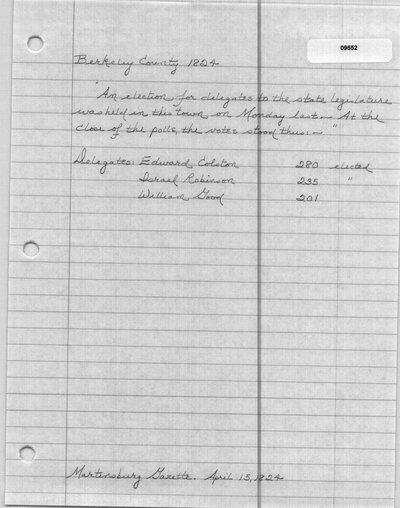 09552
Berkeley County 1824
"An election for delegates to the state legislature
was held in this town on Monday last. — At the
close of the polls, the votes stood thus: — "
Delegates: Edward Colston 280 elected
Israel Robinson 235 "
William Good 201
Martinsburg Gazette. April 15, 1824